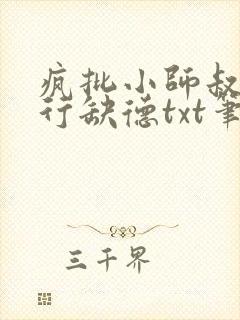 疯批小师叔
行缺德txt笔
三千界